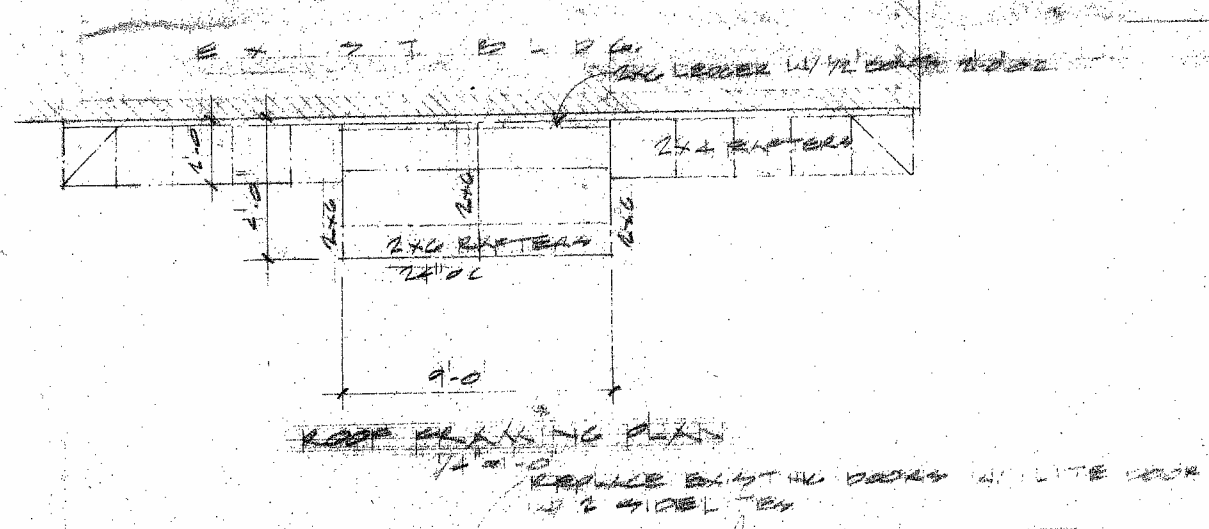 EXIST BLDG.
2X6 LEDGER W/ 1/2"
2'-0
4'-0
2X4 RAFTERS
2X6
2X6
2X6
2X6 RAFTERS
24" OC
9'-0
ROOF FRAMING PLAN
1/4"=1'-0
REPLACE EXISTING DOORS W/ LITE DOOR
W 2 SIDELITES